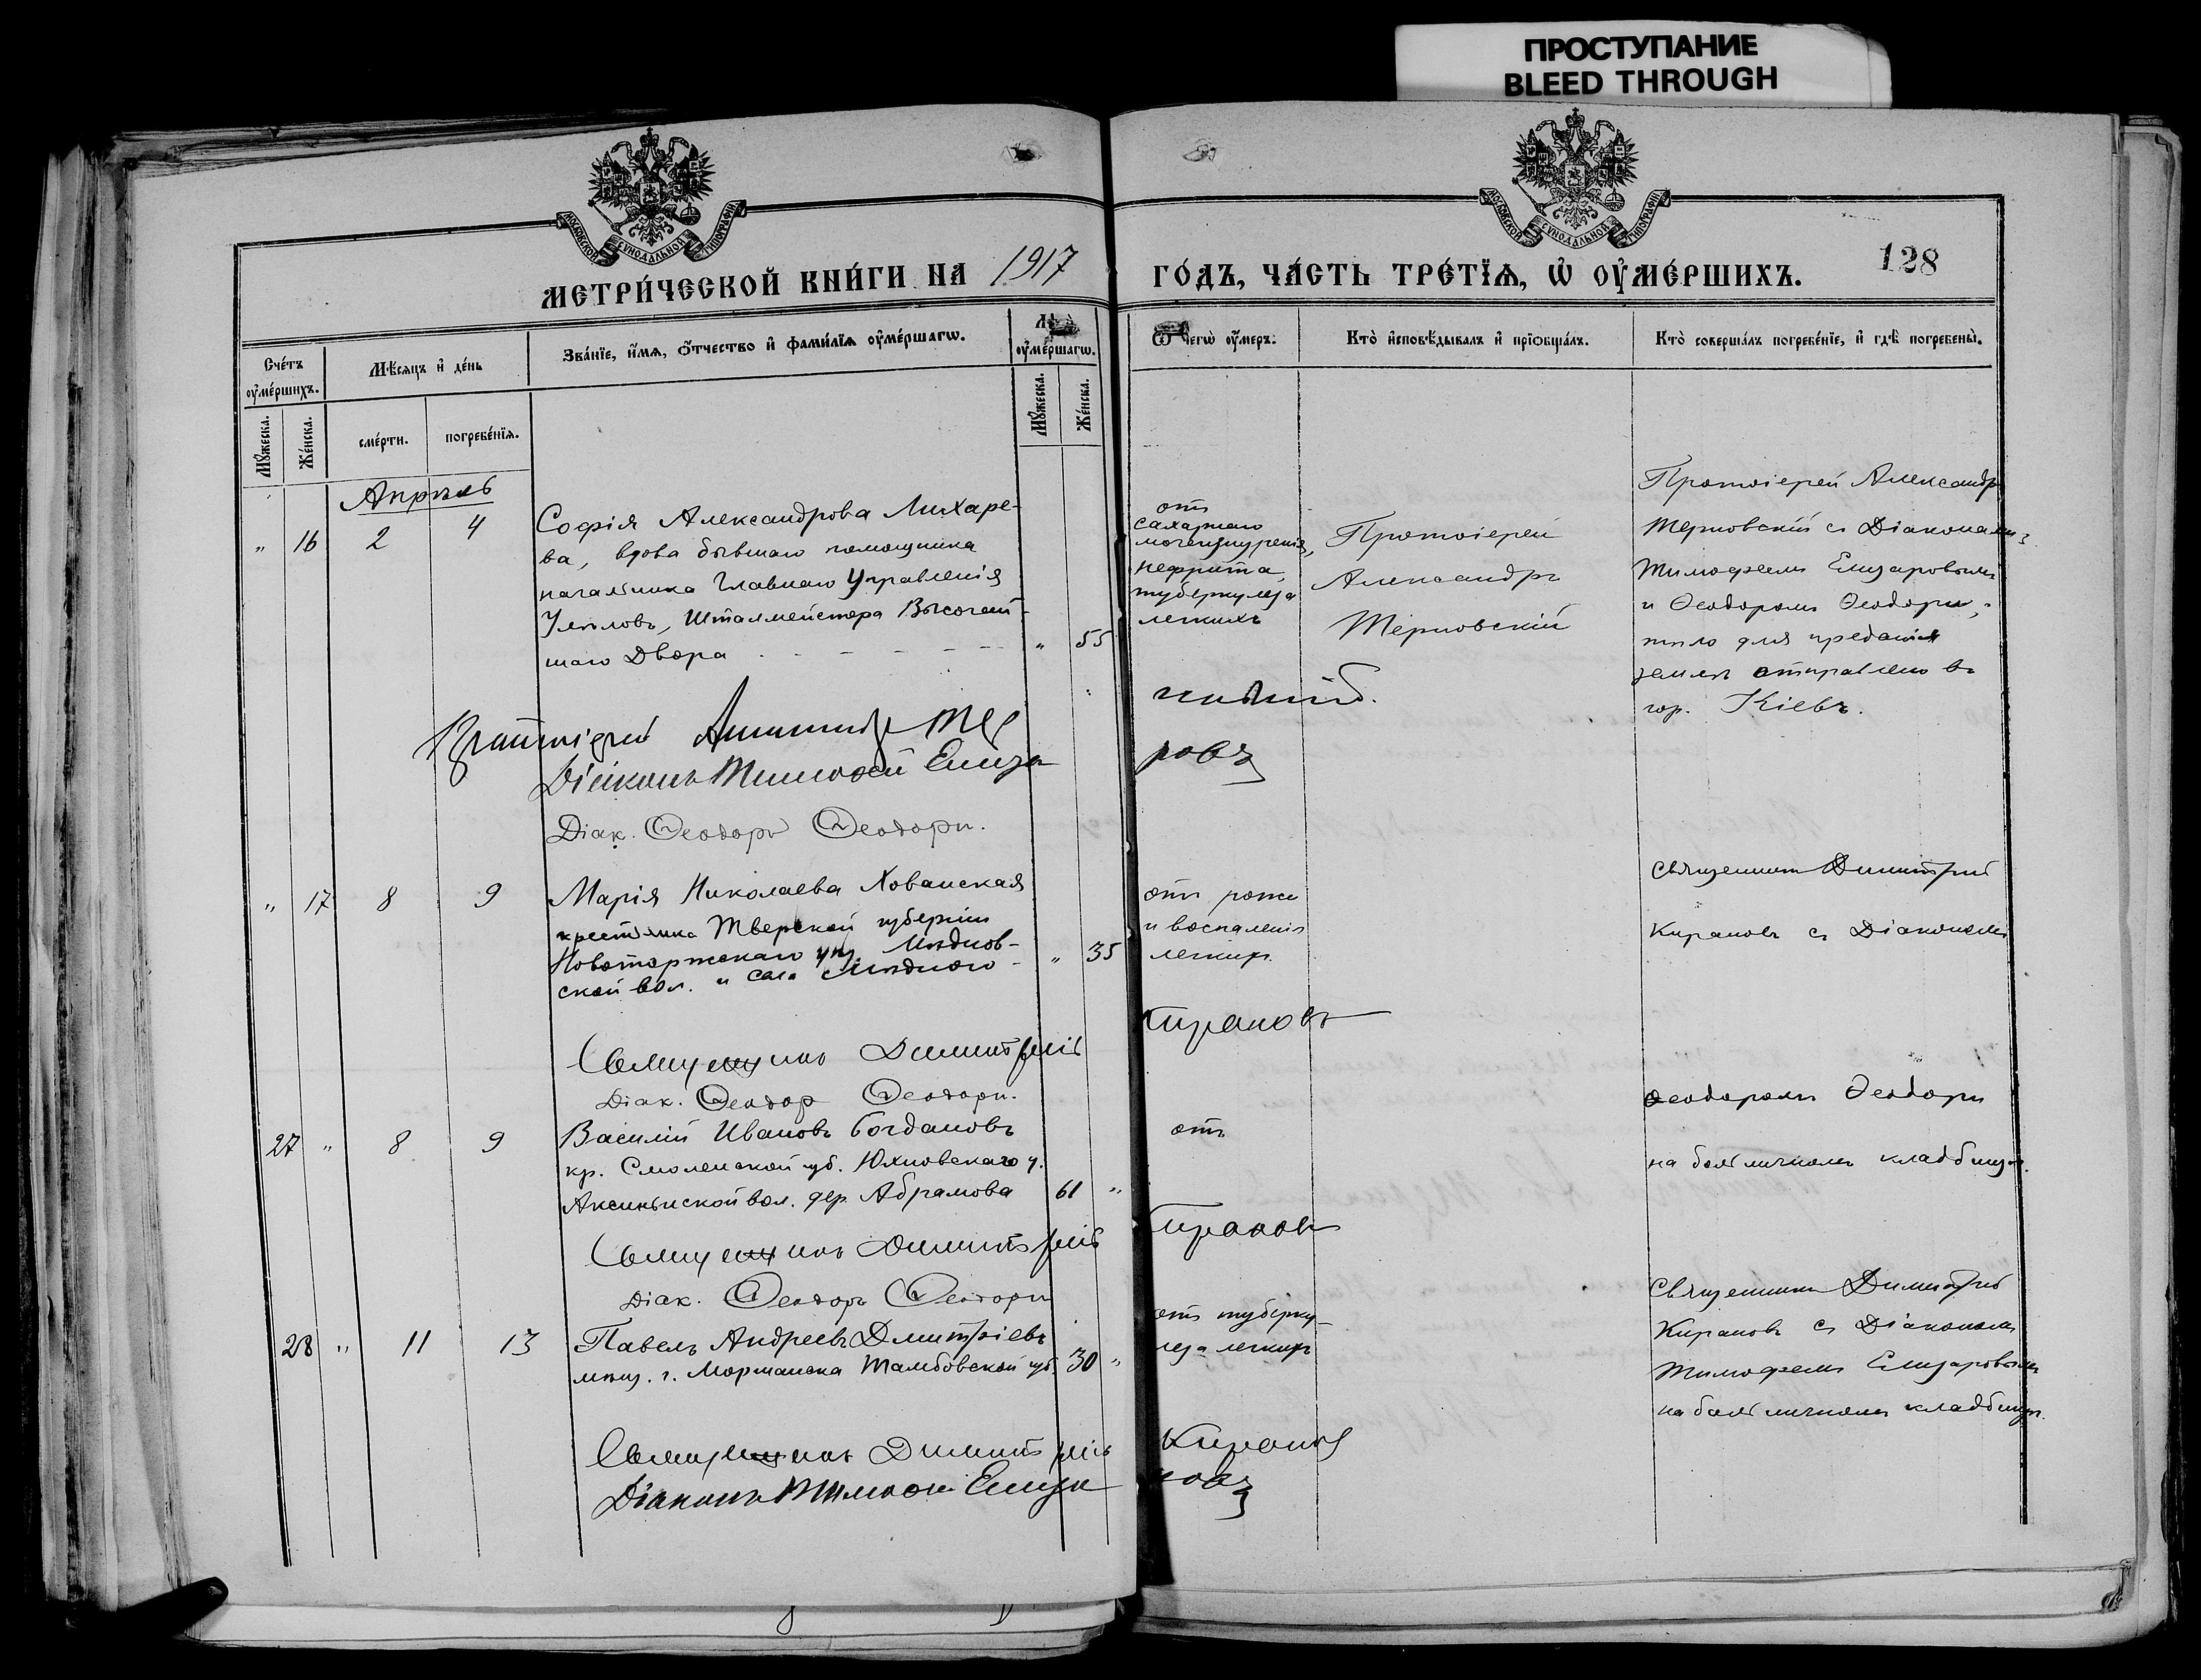 ПРОСТУПАНИЕ
BLEED THROUGH
МОСКОВСКОЙ СѴНОДАЛЬНОЙ ТИПОГРАФІИ
МОСКОВСКОЙ СѴНОДАЛЬНОЙ ТИПОГРАФІИ
МЕТРИ́ЧЕСКОЙ КНИ́ГИ НА 1917 ГО́ДЪ, ЧА́СТЬ ТРЕ́ТЇѦ, Ѡ҆ ОУ҆МЕ́РШИХЪ.
128
Сче́тъ оу҆ме́ршихъ.
Мѣ́сѧцъ и҆ де́нь
Зва́нїе, и҆́мѧ, ѻ҆́тчество и҆ фами́лїѧ оу҆ме́ршагѡ.
Лѣ оу҆ме́ршагѡ.
Ѿ чегѡ̀ оу҆́меръ:
Кто̀ и҆сповѣ́дывалъ и҆ прїѻбща́лъ.
Кто̀ соверша́лъ погребе́нїе, и҆ гдѣ̀ погребены̀.
Мꙋ́жеска.
Же́нска.
сме́рти.
погребе́нїѧ.
Мꙋ́жеска.
Же́нска.
Апрѣль
" 16 2 4
Софія Александрова Лихаре-
ва, вдова бывшаго помощника
начальника Главнаго Управленія
Удѣловъ, Шталмейстера Высочай-
шаго Двора
" 55
отъ
сахарнаго
мочеизнуренія,
нефрита,
туберкулеза
легкихъ
Протоіерей
Александръ
Терновскій
Протоіерей Александръ
Терновскій съ Діаконами
Тимофеемъ Елизаровымъ
и Ѳеодоромъ Ѳеодори,
тѣло для преданія
землѣ отправлено въ
гор. Кіевъ.
Протоіерей Александръ Терновскій.
Діаконъ Тимофей Елизаровъ
Діак. Ѳеодоръ Ѳеодори.
" 17 8 9
Марія Николаева Хованская
крестьянка Тверской губерніи
Новоторжскаго уѣз. Мѣднов-
ской вол. и села Мѣдного
" 35
отъ рожи
и воспаленія
легкихъ
Священникъ Димитрій
Кирановъ съ Діакономъ
Священникъ Димитрій Кирановъ
Діак. Ѳеодоръ Ѳеодори.
Ѳеодоромъ Ѳеодори
27 " 8 9
Василій Ивановъ Богдановъ
кр. Смоленской губ. Юхновскаго у.
Аксиньинской вол. дер. Абрамова
61 "
отъ
на больничномъ кладбищѣ.
Священникъ Димитрій Кирановъ
Діак. Ѳеодоръ Ѳеодори
28 " 11 13
Павелъ Андреевъ Дмитріевъ
мѣщ. г. Моршанска Тамбовской губ.
30 "
отъ туберку-
леза легкихъ
Священникъ Димитрій
Кирановъ съ Діакономъ
Тимофеемъ Елизаровымъ
на больничномъ кладбищѣ.
Священникъ Димитрій Кирановъ
Діаконъ Тимофей Елизаровъ